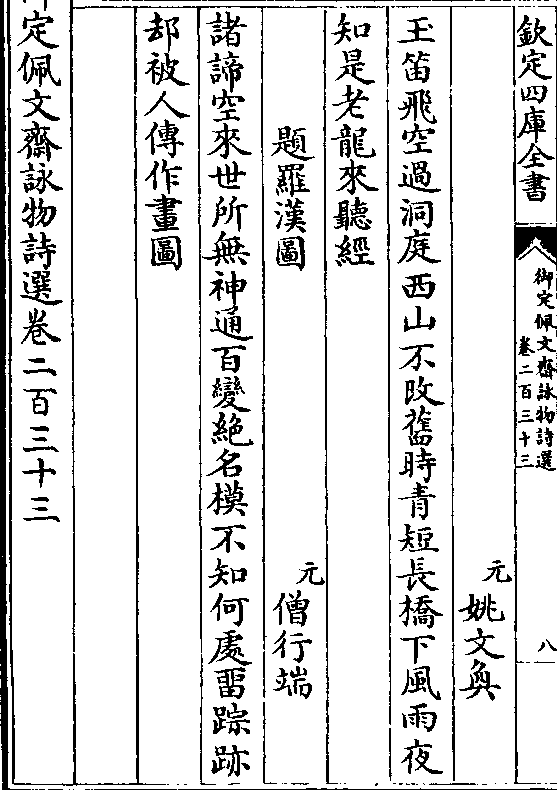 欽定四庫全書
御定佩文齋詠物詩選
卷二百三十三
八
元 姚文奐
玉笛飛空過洞庭西山不改舊時青短長橋下風雨夜
知是老龍來聽經
題羅漢圖
元 僧行端
諸諦空來世所無神通百變絕名模不知何處畱踪跡
却被人傳作畫圖
御定佩文齋詠物詩選卷二百三十三